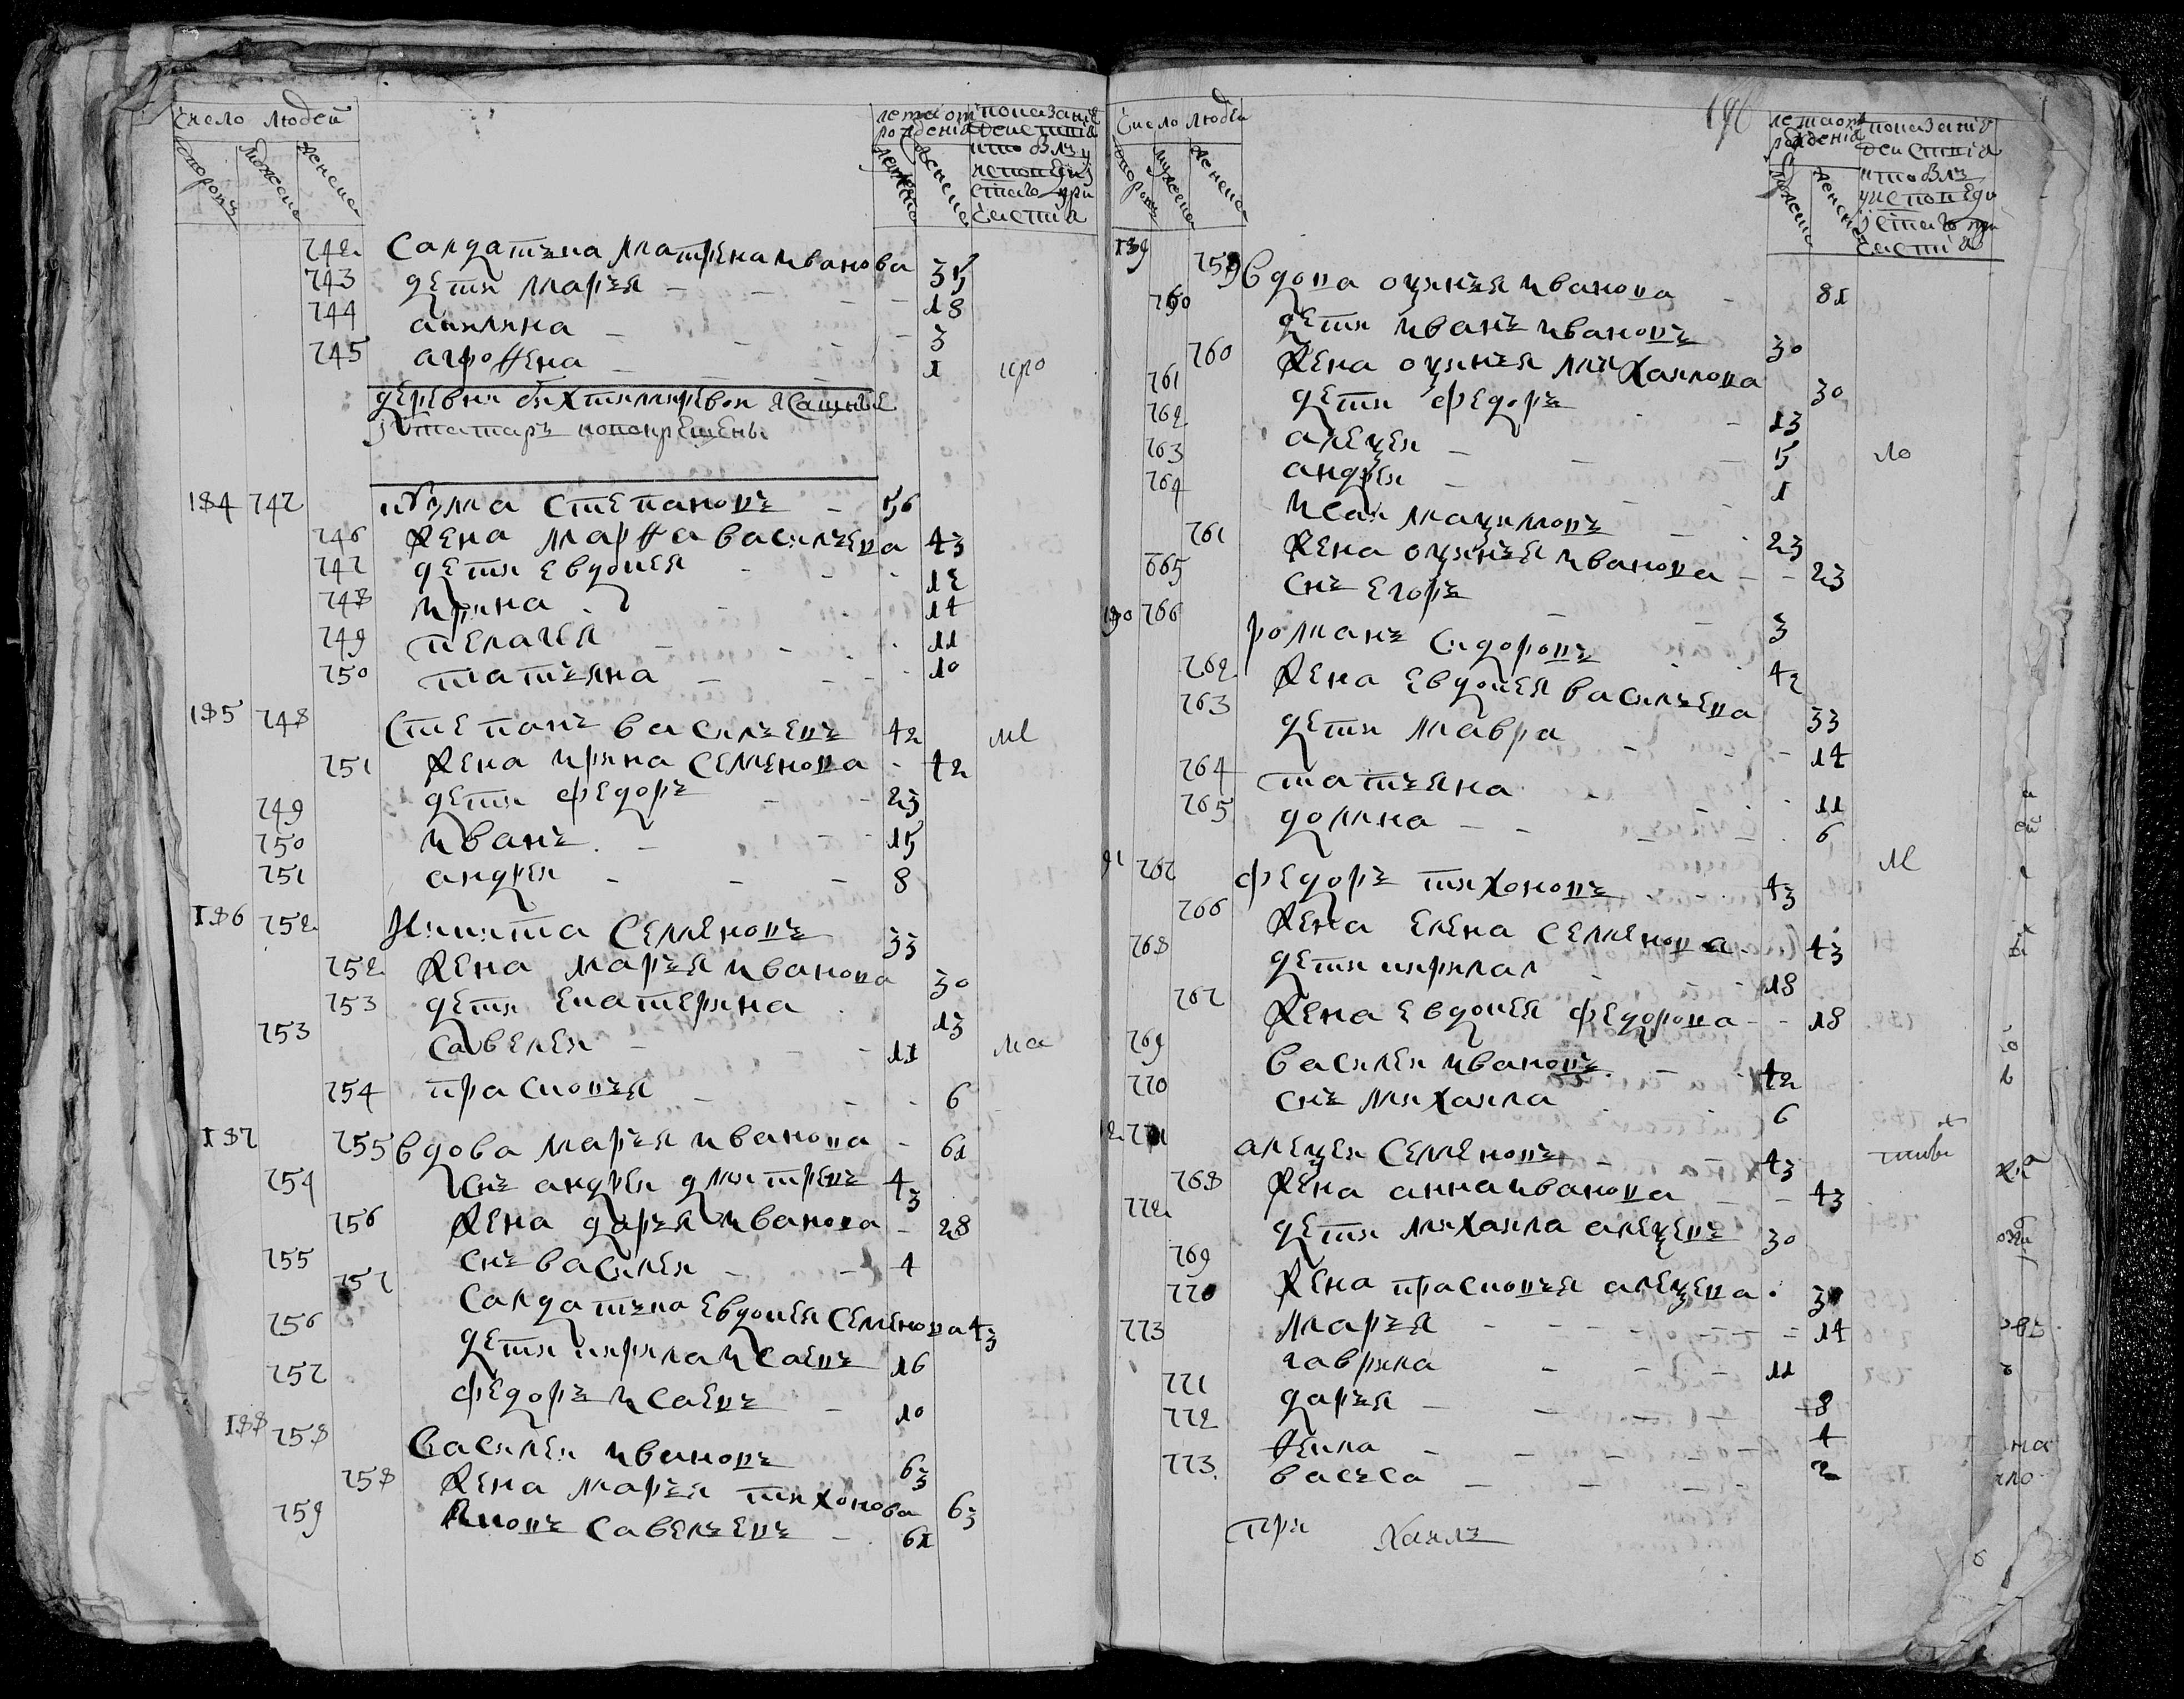 число людей
дворовъ мужеска женска
лета от рождения
мужеска женска
показание действия
кто были у исповеди и святаго причастия
742 Салдатъка Матрена иванова 35
743 дети марья 18
744 акилина 3
745 агрофена 1
деревни бихтимиревои ясашные
из татаръ новокрещены
184 747 кузма степановъ 56
746 жена марфа василъева 43
747 дети евдокея 12
748 ирина 14
749 пелагея 11
750 татъяна 10
185 748 степанъ василъевъ 42
751 жена ирина семенова 42
749 дети федоръ 23
750 иванъ 15
751 андреи 8
186 752 Никита семеновъ 33
752 жена маръя иванова 30
753 дети екатерина 13
753 савелеи 11
754 прасковъя 6
187 755 вдова маръя иванова 61
754 снъ андреи дмитревъ 43
756 жена даръя иванова 28
755 снъ василеи 4
757 салдатъка евдокея семенова 43
756 дети кирила исаевъ 16
757 федоръ исаевъ 10
188 758 василеи ивановъ 63
758 жена маръя тихонова 63
759 яковъ савелъевъ 61
196
число людей
дворовъ мужеска женска
лета от рождения
мужеска женска
показание действия
кто были у исповеди и святаго причастия
189 759 вдова оксинъя иванова 81
760 дети иванъ ивановъ 30
760 жена оксинъя михаилова 30
761 дети федоръ 13
762 алексеи 5
763 андреи 1
764 исаи максимовъ 23
761 жена оксинъея иванова 23
665 снъ егоръ 3
190 766 романъ сидоровъ 42
762 жена евдокея василъева 33
763 дети мавра 14
764 татъяна 11
765 домна 6
91 767 федоръ тихоновъ 43
766 жена елена семенова 43
768 дети кирила 18
767 жена евдокея федорова 18
769 василеи ивановъ 42
770 снъ михаила 6
771 алексеи семеновъ 43
768 жена анна иванова 43
772 дети михаила алексевъ 30
769 жена прасковъя алексева
770 маръя 14
773 гаврила 11
771 даръя 8
772 фекла 4
773 васъса 2
при хаилъ